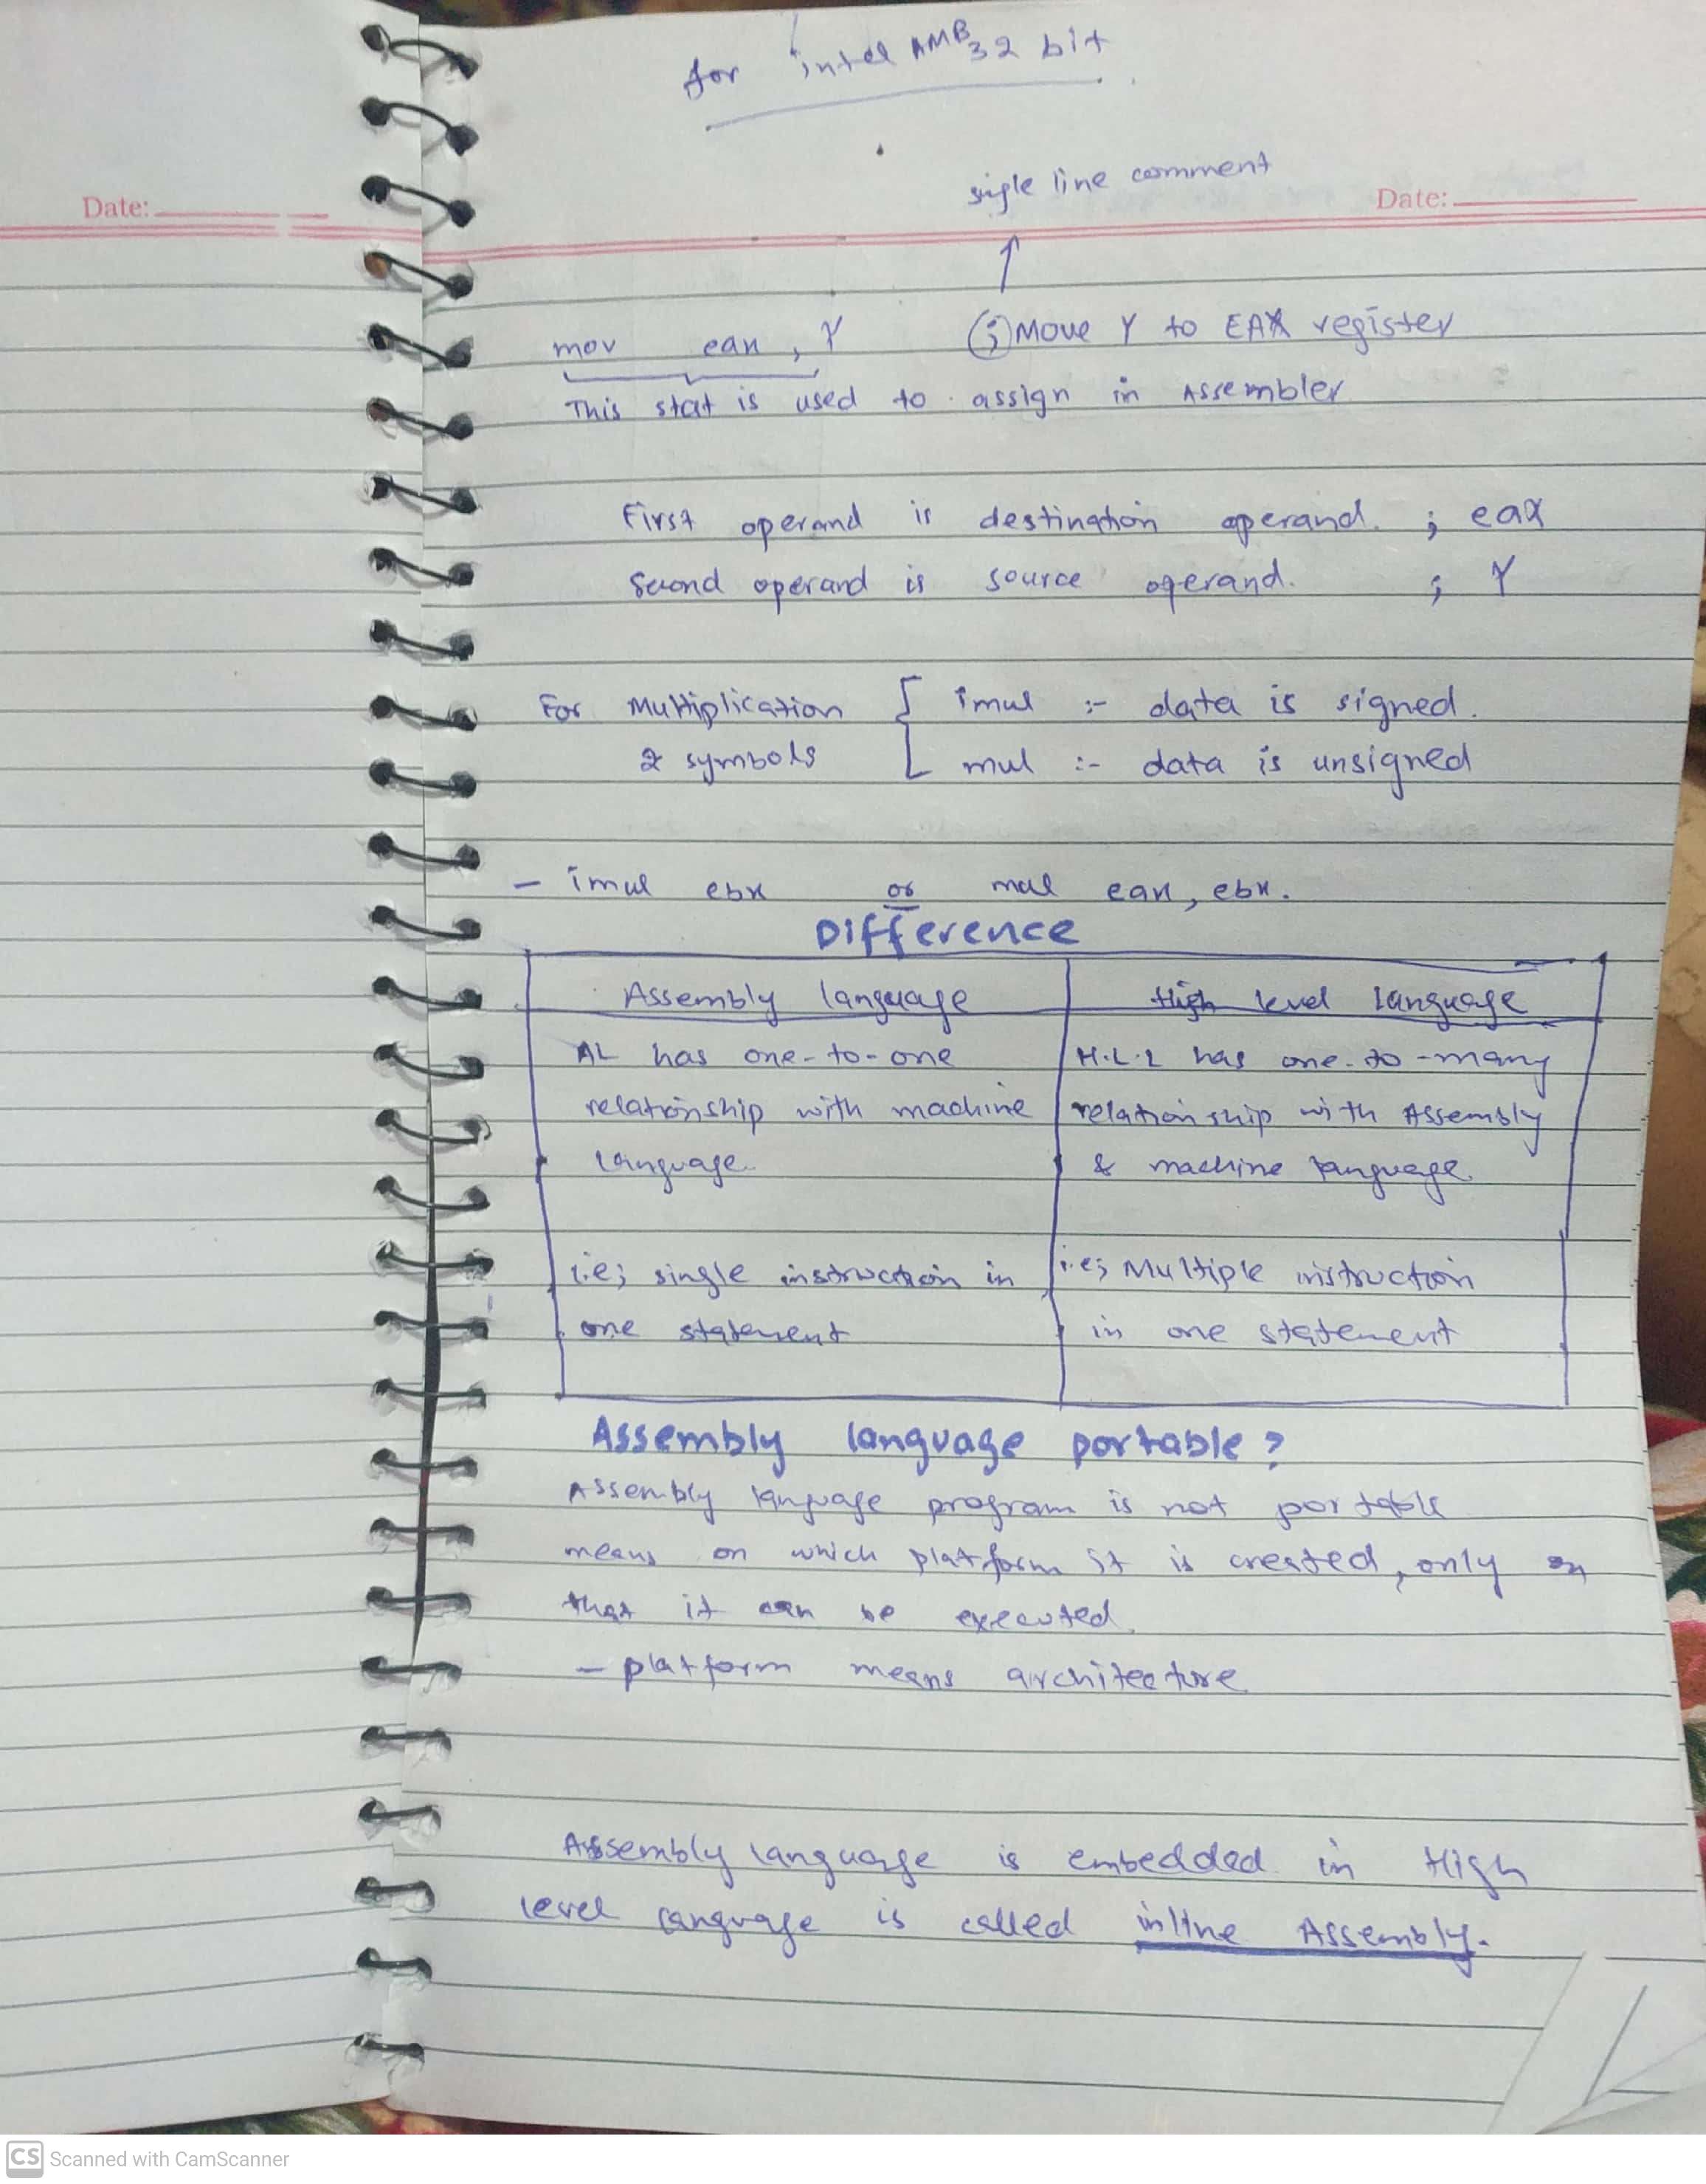 for intel AMB 32 bit
single line comment
Date:
Date:
mov eax, Y ; Move Y to EAX register
This stat is used to assign in Assembler
First operand is destination operand. ; eax
Second operand is source operand. ; Y
For Multiplication { imul :- data is signed.
2 symbols mul :- data is unsigned
- imul ebx or mul eax, ebx.
Difference
Assembly language High level language
AL has one-to-one H.L.L has one-to-many
relationship with machine relationship with Assembly
language. & machine language.
i.e; single instruction in i.e; Multiple instruction
one statement in one statement
Assembly language portable?
Assembly language program is not portable
means on which platform it is created, only on
that it can be executed.
- platform means architecture
Assembly language is embedded in High
level language is called inline Assembly.
CS Scanned with CamScanner